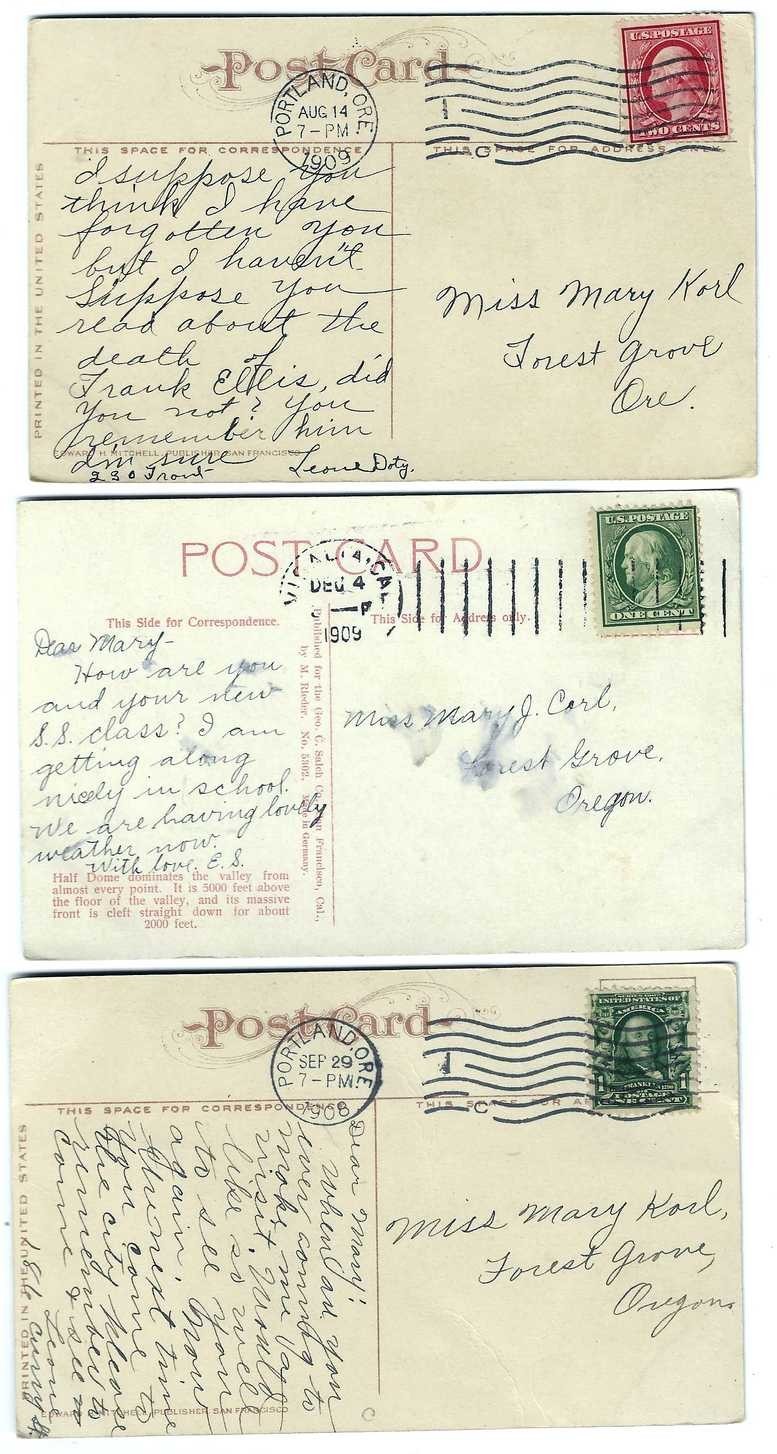 Post Card
PORTLAND, ORE.
AUG 14
7-PM
1909
U.S. POSTAGE
TWO CENTS
THIS SPACE FOR CORRESPONDENCE
THIS SPACE FOR ADDRESS ONLY
PRINTED IN THE UNITED STATES
I suppose you
think I have
forgotten you
but I haven't.
Suppose you
read about the
death of
Frank Ellis, did
you not? You
remember him
I'm sure
EDWARD H. MITCHELL, PUBLISHER, SAN FRANCISCO
230 Front
Leone Doty.
Miss Mary Korl
Forest Grove
Ore.
POST CARD
VISALIA, CAL
DEC 4
P
1909
U.S. POSTAGE
ONE CENT
This Side for Correspondence.
This Side for Address only.
Dear Mary-
How are you
and your new
S.S. class? I am
getting along
nicely in school.
We are having lovely
weather now.
With love. E.S.
Half Dome dominates the valley from
almost every point. It is 5000 feet above
the floor of the valley, and its massive
front is cleft straight down for about
2000 feet.
Published for the Geo. C. Salch San Francisco, Cal.,
by M. Rieder. No. 5302. Made in Germany.
Miss Mary J. Corl,
Forest Grove,
Oregon.
Post Card
PORTLAND ORE
SEP 29
7-PM
1908
UNITED STATES OF
AMERICA
FRANKLIN
1 1
POSTAGE
ONE CENT
THIS SPACE FOR CORRESPONDENCE
THIS SPACE FOR
PRINTED IN THE UNITED STATES
Dear Mary:
When are you
ever coming to
make me a
visit. Would
like so well
to see you
again. Now
the next time
you come to
the city please
remember to
come & see m
Leone
186 Curry St.
EDWARD H. MITCHELL, PUBLISHER, SAN FRANCISCO
Miss Mary Korl,
Forest Grove,
Oregon.